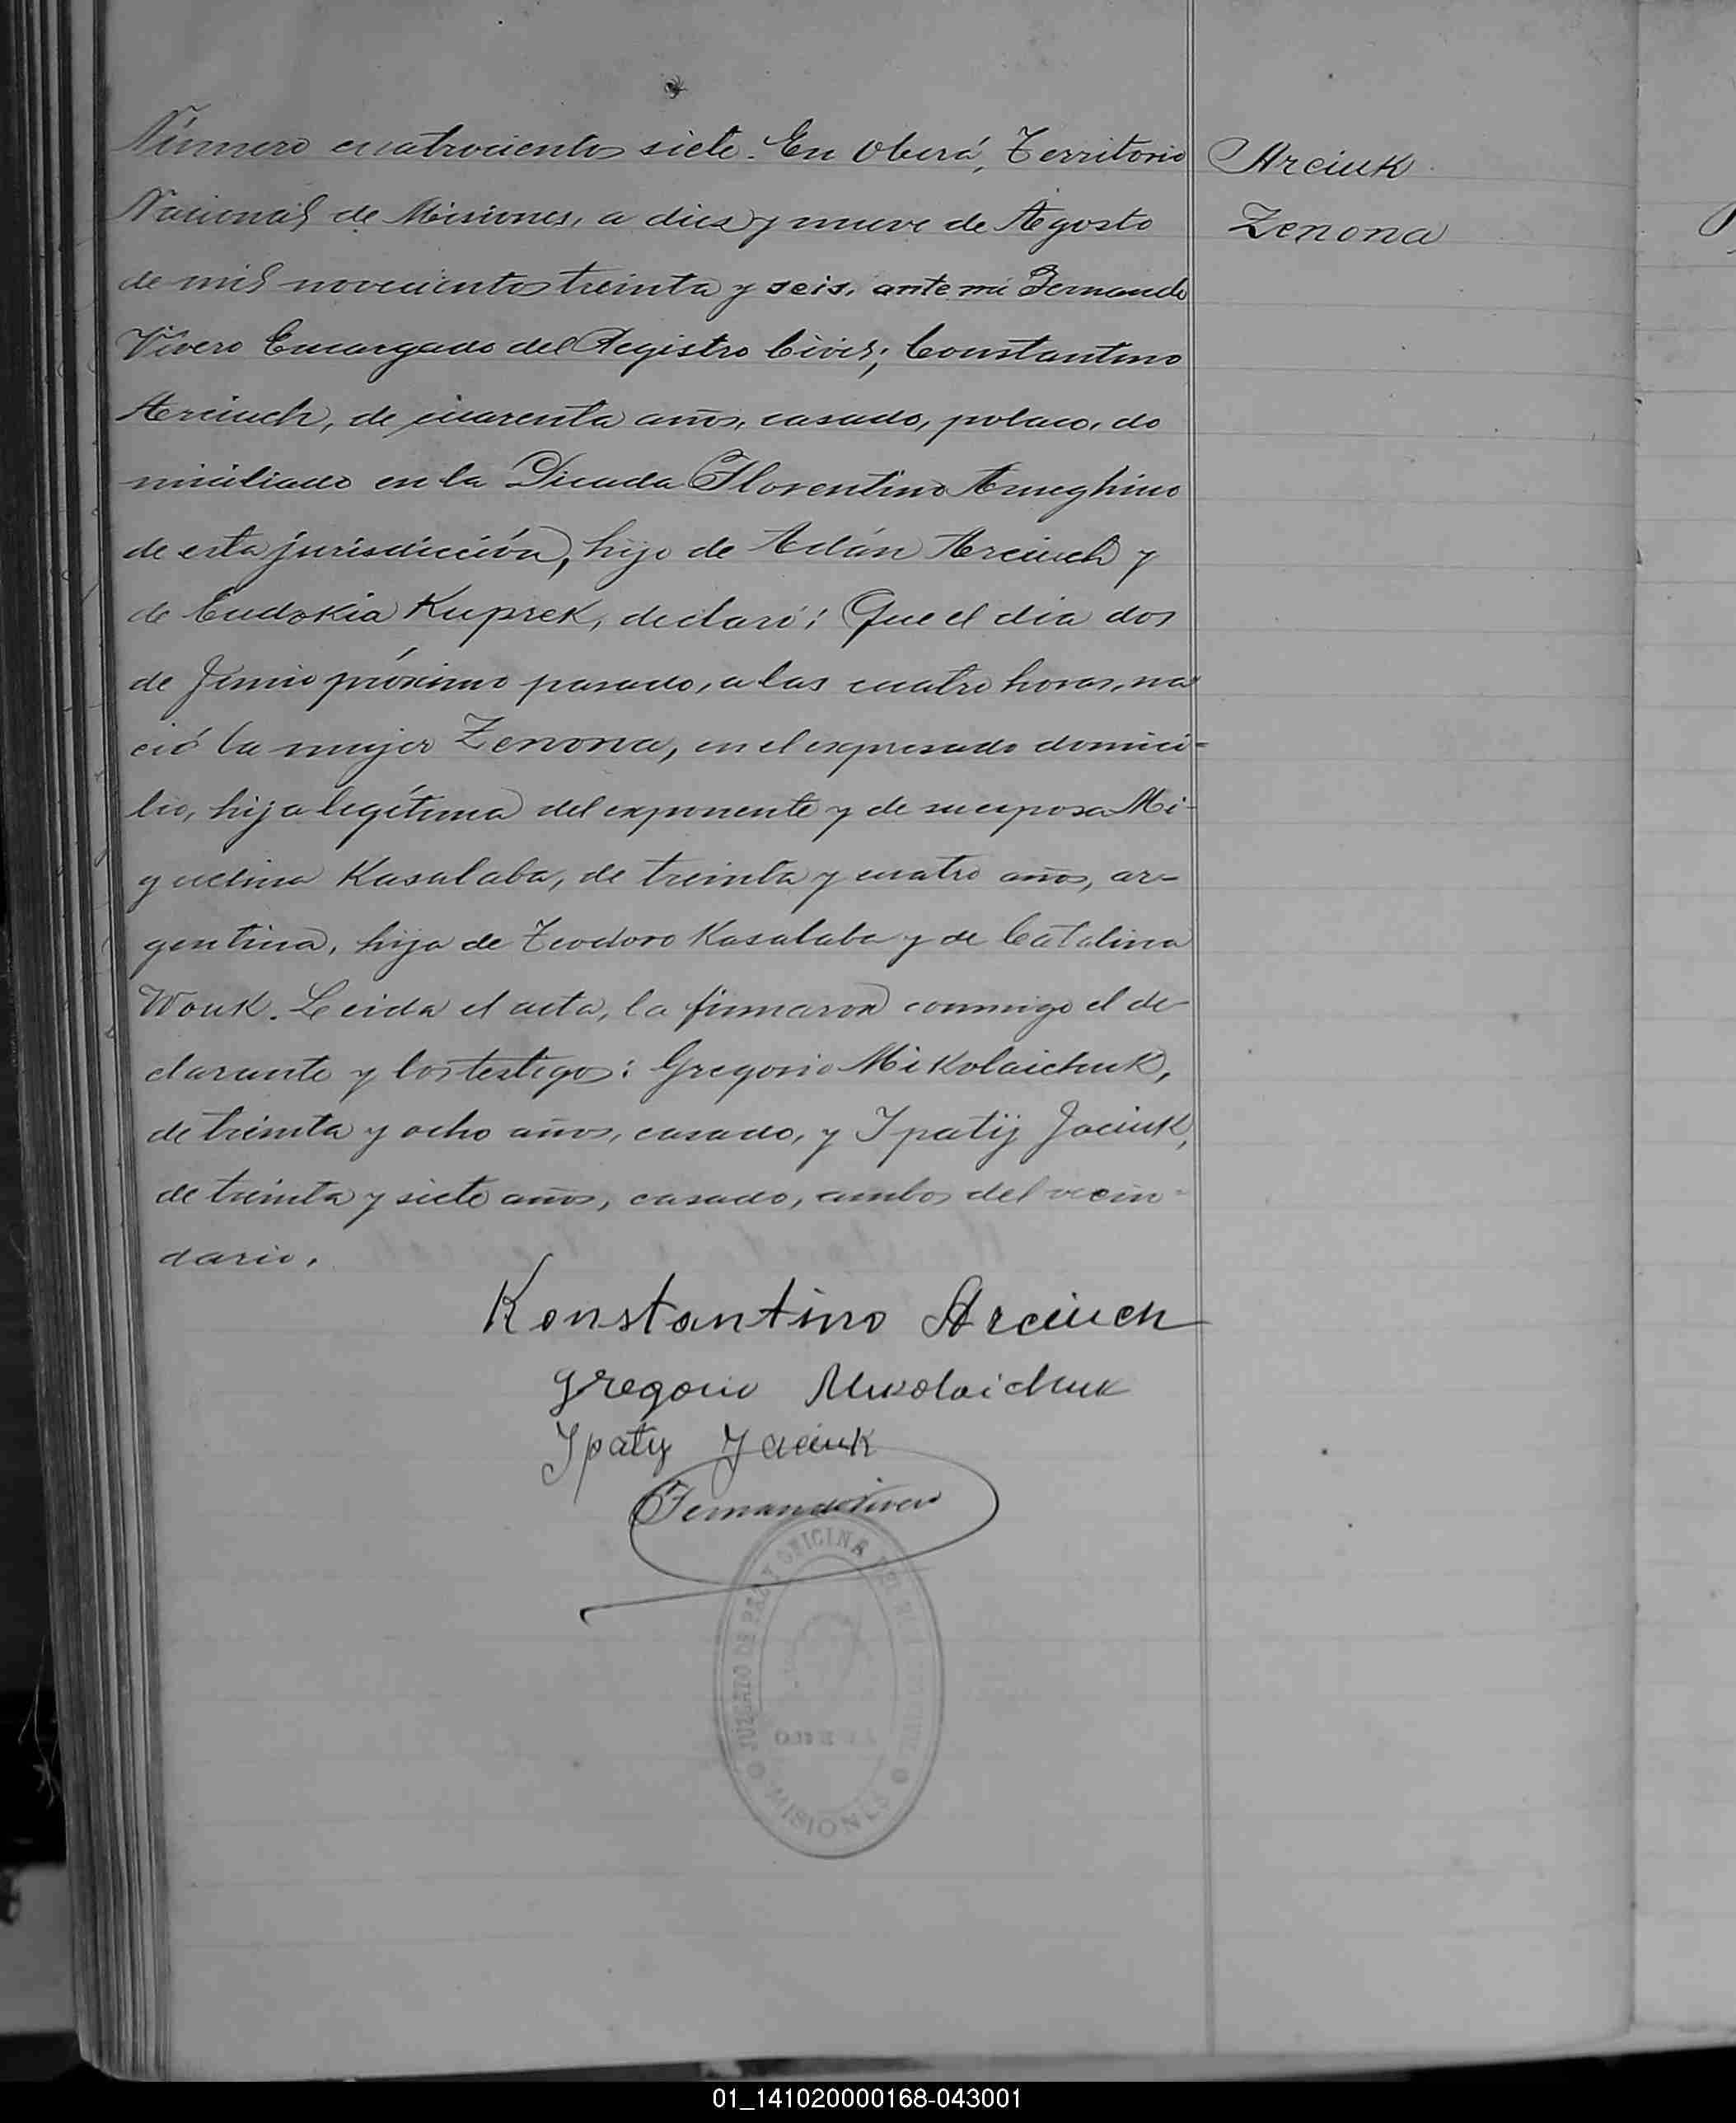 Número cuatrocientos siete. En Oberá, Territorio
Nacional de Misiones, a diez y nueve de Agosto
de mil novecientos treinta y seis, ante mi Fernando
Vivero Encargado del Registro Civil; Constantino
Arciuch, de cuarenta años, casado, polaco, do
miciliado en la Picada Florentino Ameghino
de esta jurisdicción, hijo de Adán Arciuch y
de Eudokia Kuprek, declaró: Que el día dos
de Junio próximo pasado, a las cuatro horas, na
ció la mujer Zenona, en el expresado domici-
lio, hija legítima del exponente y de su esposa Mi-
guelina Kasalaba, de treinta y cuatro años, ar-
gentina, hija de Teodoro Kasalaba y de Catalina
Wouk. Leida el acta, la firmaron conmigo el de-
clarante y los testigos: Gregorio Mikolaichuk,
de treinta y ocho años, casado, y Ipatij Jaciuk,
de treinta y siete años, casado, ambos del vecin-
dario.
Konstantino Arciuch
Gregorio Mikolaichuk
Ipaty Jaciuk
Fernando Vivero
JUZGADO DE PAZ Y OFICINA DEL
MISIONES
Arciuk
Zenona
01_141020000168-043001